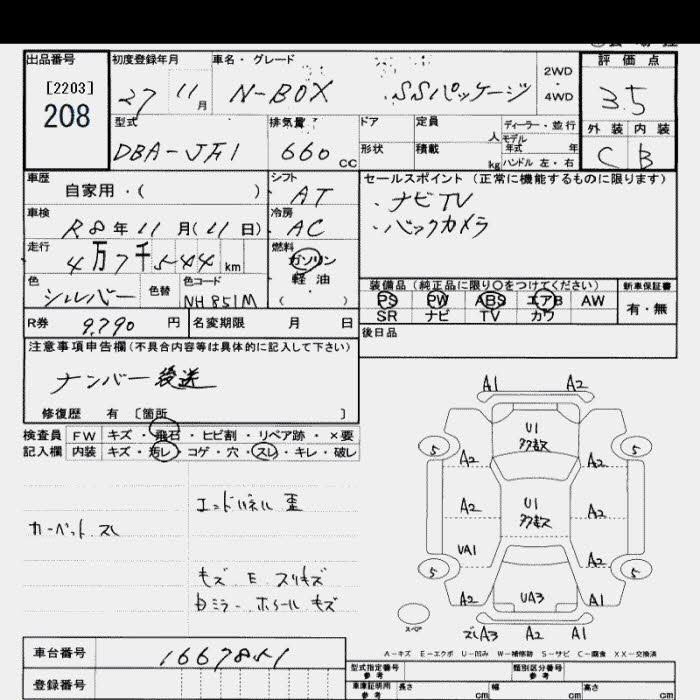 出品番号
[2203]
208
初度登録年月
27 11月
車名・グレード
N-BOX SSパッケージ
2WD
・
4WD
評価点
3.5
外装 内装
C B
型式
DBA-JF1
排気量
660 cc
ドア
形状
定員 人
積載 kg
ディーラー・並行
モデル年式 年
ハンドル 左・右
車歴
自家用・( )
シフト
AT
セールスポイント(正常に機能するものに限ります)
・ナビTV
・バックカメラ
車検
R8年11月(11日)
冷房
AC
走行
4万7千544km
燃料
ガソリン
軽油
( )
色
シルバー
色替
色コード
NH851M
装備品(純正品に限り〇をつけてください)
PS PW ABS エアB AW
SR ナビ TV カワ
新車保証書
有・無
R券 9,790円
名変期限 月 日
後日品
注意事項申告欄(不具合内容等は具体的に記入して下さい)
ナンバー後送
修復歴 有 〔箇所 〕
検査員
記入欄
FW キズ・飛石・ヒビ割・リペア跡・×要
内装 キズ・汚レ・コゲ・穴・スレ・キレ・破レ
エンドパネル 歪
カーペット スレ
キズ E スリキズ
ミラー ホイール キズ
A1 A2
U1
多数
5 5
A2 A2
A2 U1 多数 A2
UA1
5 A2 5
A2 UA3 A1
スペア
ズレA3 A2 A1
A-キズ E-エクボ U-凹み W-補修跡 S-サビ C-腐食 XX-交換済
車台番号 1667851
登録番号
型式指定番号
参考
類別区分番号
参考
車庫証明用
参考
長さ cm
幅 cm
高さ cm